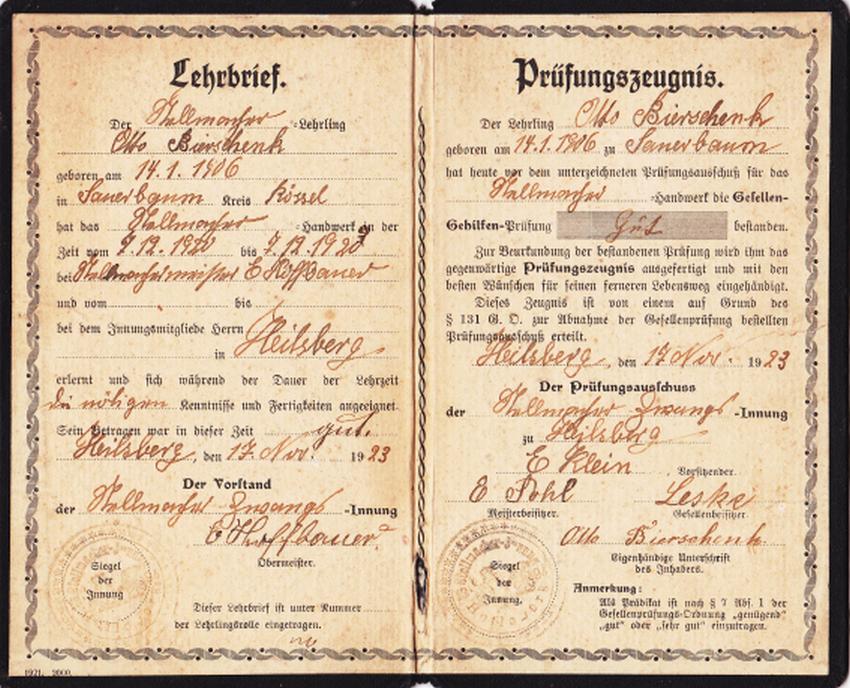 Lehrbrief.
Der Stellmacher -Lehrling
Otto Bierschenk
geboren am 14.1.1906
in Sauerbaum Kreis Rössel
hat das Stellmacher -Handwerk in der
Zeit vom 7.12.1920 bis 7.12.192
bei Stellmachermeister E Hoffbauer
und vom bis
bei dem Innungsmitgliede Herrn
in Heilsberg
erlernt und sich während der Dauer der Lehrzeit
die nötigen Kenntnisse und Fertigkeiten angeeignet.
Sein Betragen war in dieser Zeit gut.
Heilsberg, den 17. Nov. 1923
Der Vorstand
der Stellmacher Zwangs -Innung
E Hoffbauer
Obermeister.
Siegel
der
Innung
Dieser Lehrbrief ist unter Nummer
der Lehrlingsrolle eingetragen.
1921. 2000.
Prüfungszeugnis.
Der Lehrling Otto Bierschenk
geboren am 14.1.1906 zu Sauerbaum
hat heute vor dem unterzeichneten Prüfungsausschuß für das
Stellmacher -Handwerk die Gesellen-
Gehilfen-Prüfung Gut bestanden.
Zur Beurkundung der bestandenen Prüfung wird ihm das
gegenwärtige Prüfungszeugnis ausgefertigt und mit den
besten Wünschen für seinen ferneren Lebensweg eingehändigt.
Dieses Zeugnis ist von einem auf Grund des
§ 131 G. O. zur Abnahme der Gesellenprüfung bestellten
Prüfungsausschuß erteilt.
Heilsberg, den 17 Nov. 1923
Der Prüfungsausschuss
der Stellmacher Zwangs -Innung
zu Heilsberg
E Klein
Vorsitzender.
E Pohl Leske
Meisterbeisitzer. Gesellenbeisitzer.
Otto Bierschenk.
Eigenhändige Unterschrift
des Inhabers.
Siegel
der
Innung.
Anmerkung:
Als Prädikat ist nach § 7 Abs. 1 der
Gesellenprüfungs-Ordnung „genügend"
„gut" oder „sehr gut" einzutragen.